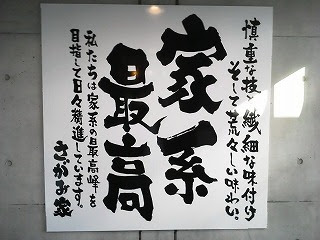 慎重な技と繊細な味付け
そして荒々しい味わい。
家系
最高
私たちは家系の最高峰を
目指して日々精進しています。
さがみ家